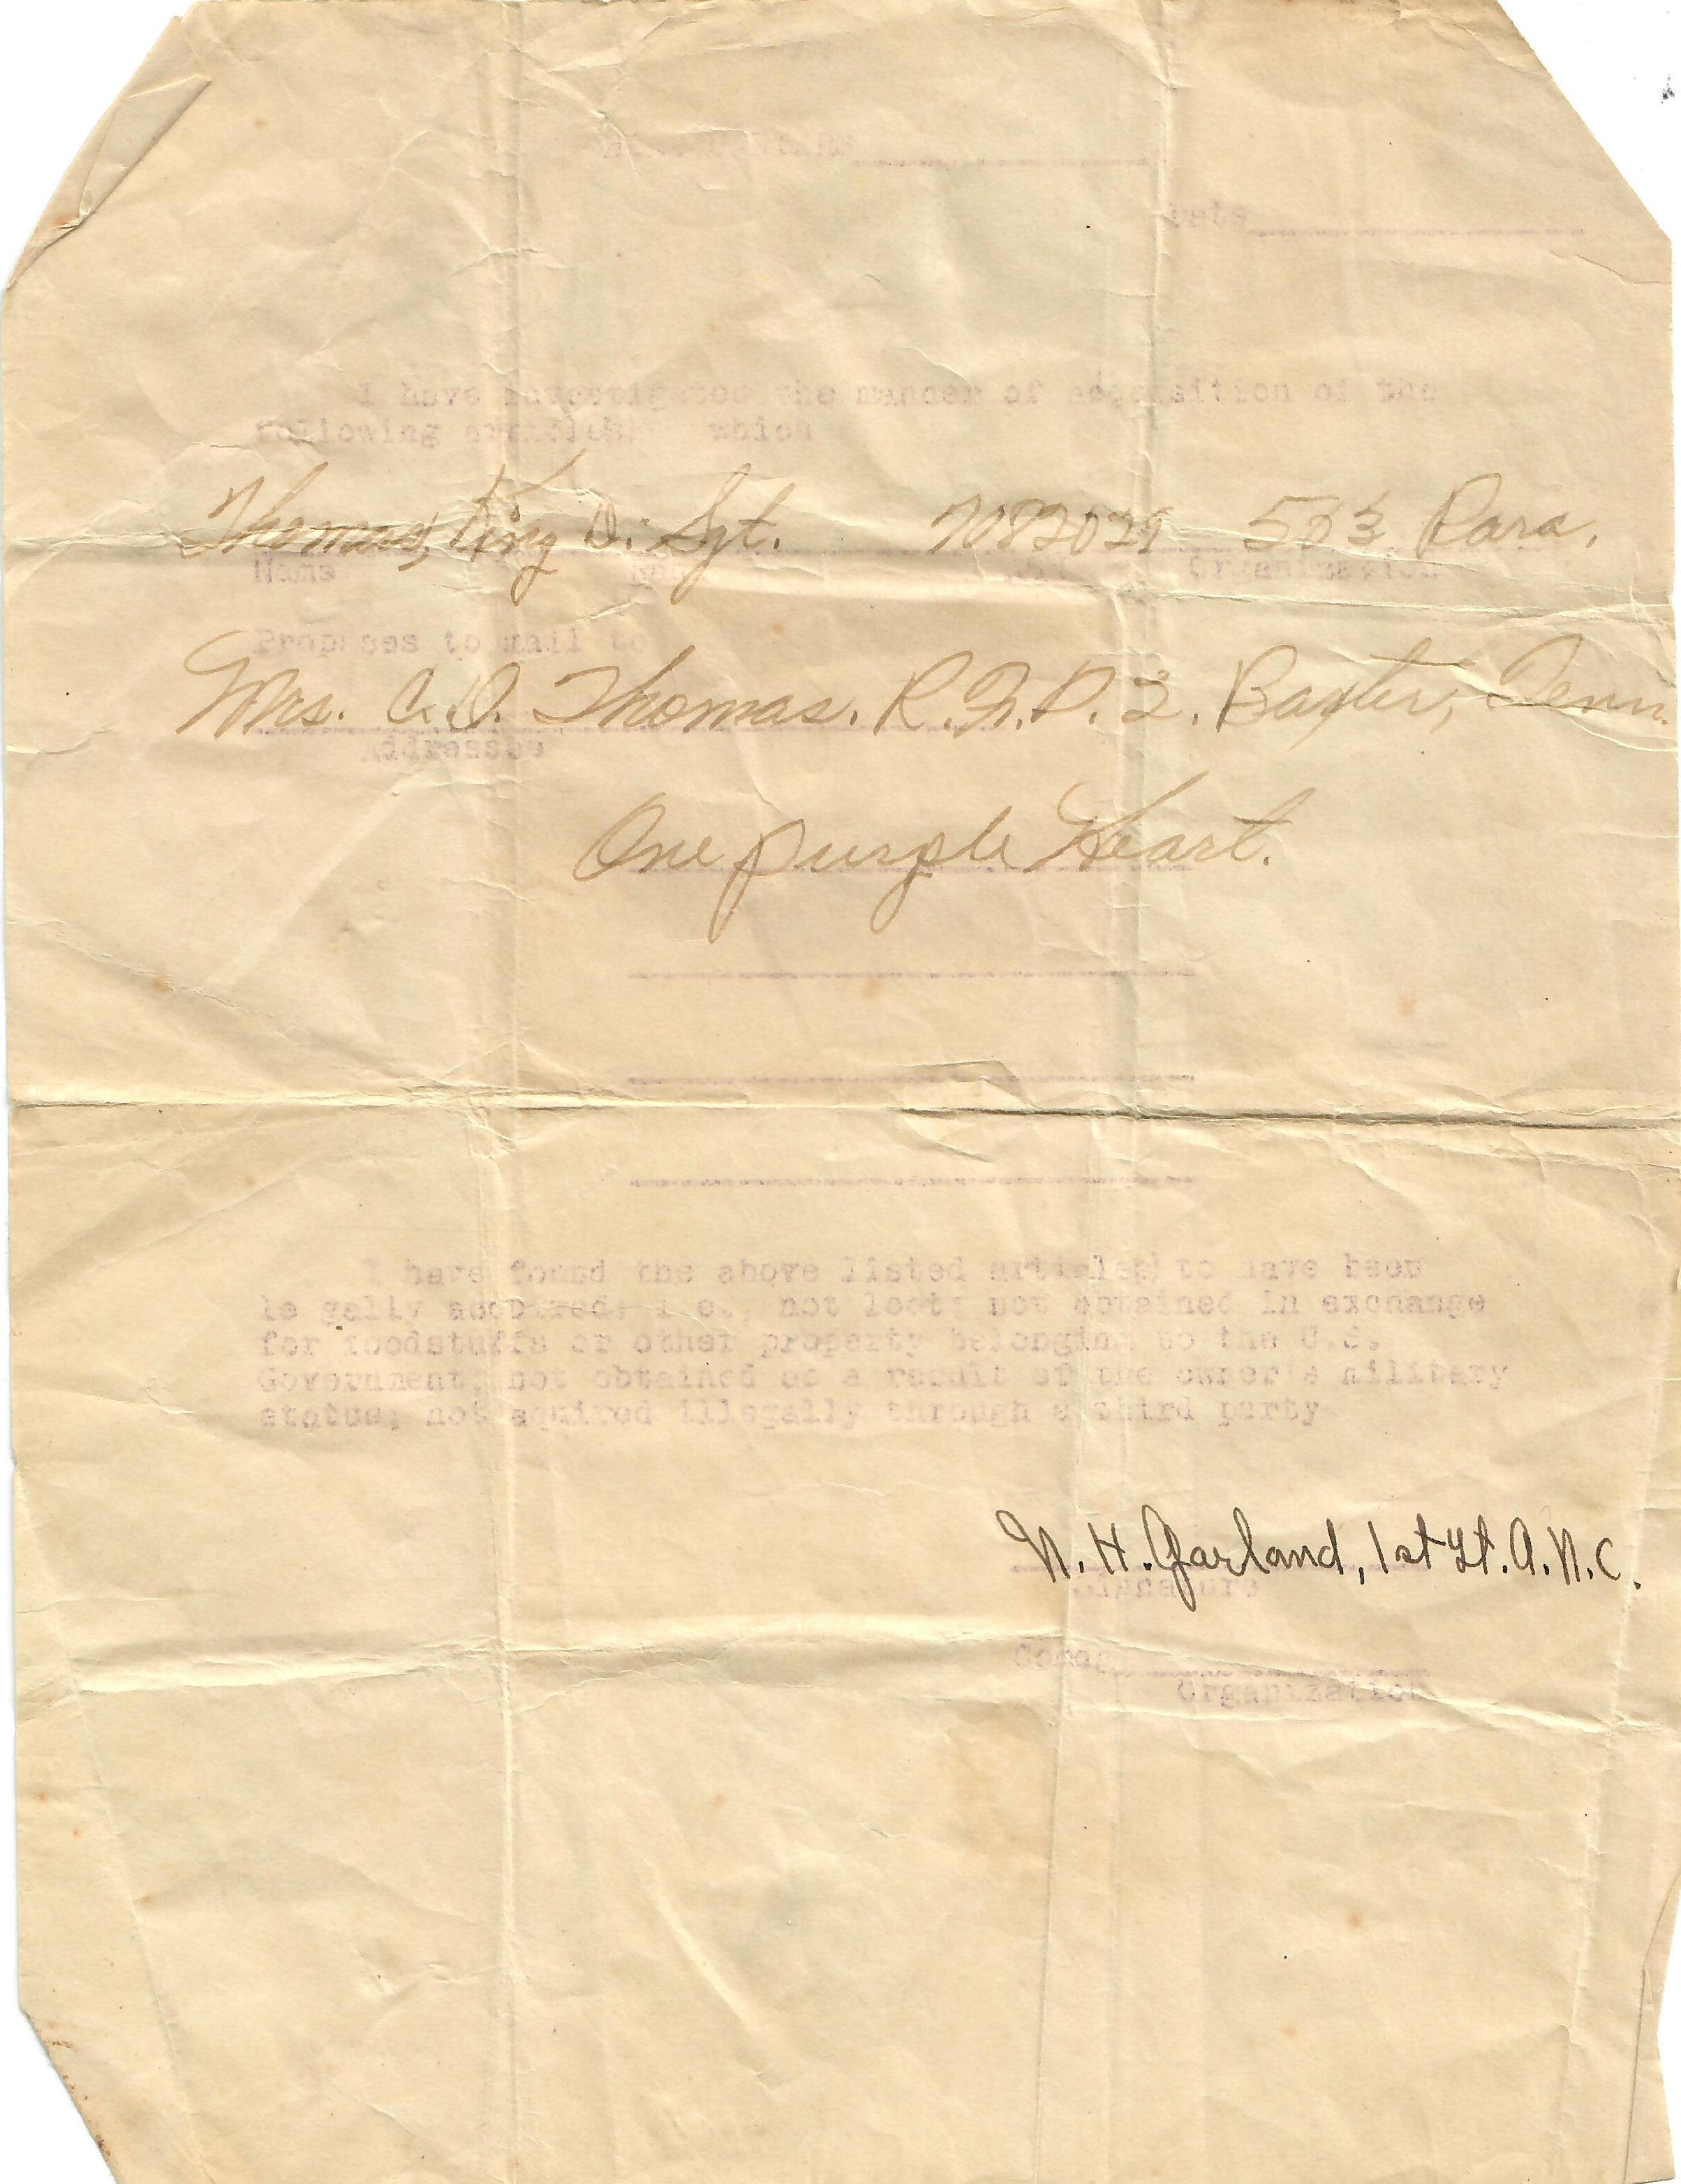 Date
I have investigated the manner of acquisition of the
following article(s) which
Thomas, King D. Sgt. 7082029 503 Para.
Name Organization
Proposes to mail to
Mrs. C.D. Thomas. R.F.D. 2. Baxter, Tenn.
Addressee
One purple Heart.
I have found the above listed article(s) to have been
le gally acquired; i.e., not loot; not obtained in exchange
for foodstuffs or other property belonging to the U.S.
Government; not obtained as a result of the owner's military
status; not aquired illegally through a third party.
N. H. Garland, 1st Lt. A.N.C.
Signature
Comdg
Organization